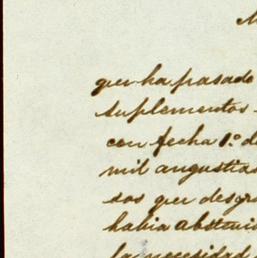 que ha pasado
suplementos
con fecha 1º. de
mil angustias
sos que desgra
habia abstenid
la necesidad